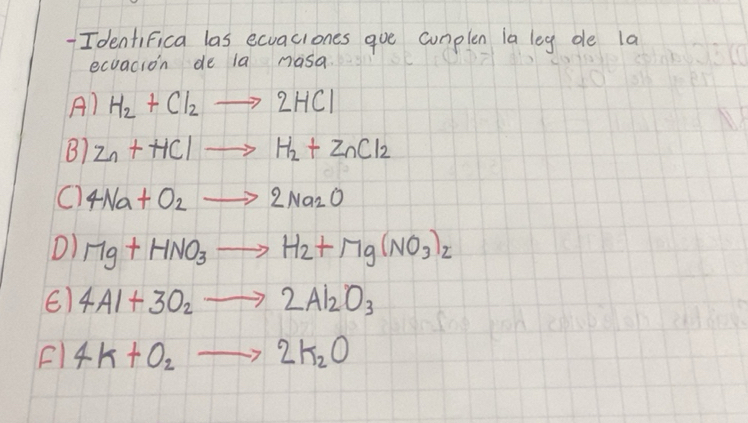 -Identifica las ecuaciones que cumplen la ley de la
ecuación de la masa
A) H₂ + Cl₂ → 2HCl
B) Zn + HCl → H₂ + ZnCl2
C) 4Na + O₂ → 2Na₂O
D) Mg + HNO₃ → H₂ + Mg(NO₃)₂
E) 4Al + 3O₂ → 2Al₂O₃
F) 4K + O₂ → 2K₂O